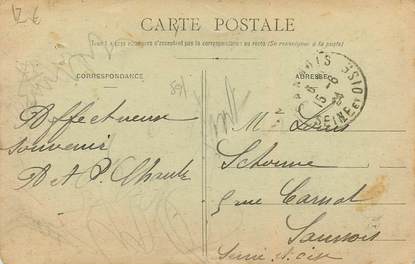 CARTE POSTALE
Tous les pays étrangers n'acceptent pas la correspondance au recto (Se renseigner à la poste)
CORRESPONDANCE
ADRESSE
Affectueux
souvenir
Mr Louis
rue Carnot
Sannois
Seine et Oise
SANNOIS
SEINE ET OISE